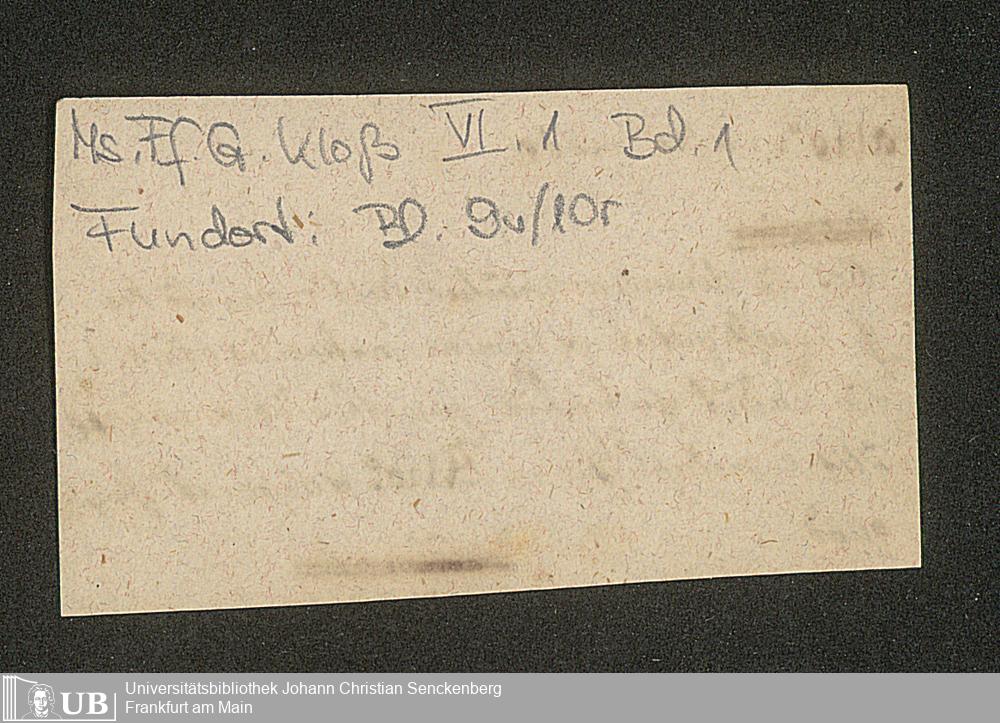 Ms. Ff. G. Kloß VI. 1 Bd. 1
Fundort: Bl. 9v/10r
UB
Universitätsbibliothek Johann Christian Senckenberg
Frankfurt am Main